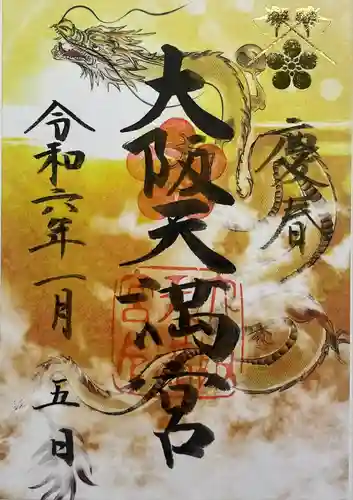 慶春
大阪天満宮
令和六年一月
五日